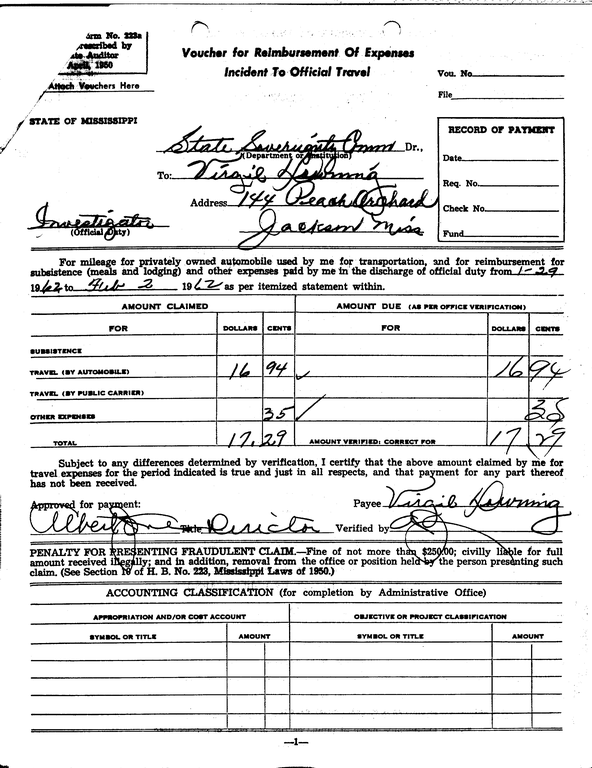 rm No. 223a
rescribed by
te Auditor
April, 1950
Attach Vouchers Here
Voucher for Reimbursement Of Expenses
Incident To Official Travel
Vou. No.
File
STATE OF MISSISSIPPI
RECORD OF PAYMENT
Date
Req. No.
Check No.
Fund
State Sovereignty Comm Dr.,
(Department or Institution)
To: Virgil Downing
Address 144 Peach Orchard
Jackson Miss
Investigator
(Official Duty)
For mileage for privately owned automobile used by me for transportation, and for reimbursement for
subsistence (meals and lodging) and other expenses paid by me in the discharge of official duty from 1-29
1962 to Feb 2 1962 as per itemized statement within.
AMOUNT CLAIMED AMOUNT DUE (AS PER OFFICE VERIFICATION)
FOR DOLLARS CENTS FOR DOLLARS CENTS
SUBSISTENCE
TRAVEL (BY AUTOMOBILE) 16 94 ✓ 16 94
TRAVEL (BY PUBLIC CARRIER)
OTHER EXPENSES 35 ✓ 35
TOTAL 17.29 AMOUNT VERIFIED: CORRECT FOR 17 29
Subject to any differences determined by verification, I certify that the above amount claimed by me for
travel expenses for the period indicated is true and just in all respects, and that payment for any part thereof
has not been received.
Approved for payment: Payee Virgil Downing
Albert Jones Title Director Verified by
PENALTY FOR PRESENTING FRAUDULENT CLAIM.—Fine of not more than $250.00; civilly liable for full
amount received illegally; and in addition, removal from the office or position held by the person presenting such
claim. (See Section 10 of H. B. No. 223, Mississippi Laws of 1950.)
ACCOUNTING CLASSIFICATION (for completion by Administrative Office)
APPROPRIATION AND/OR COST ACCOUNT OBJECTIVE OR PROJECT CLASSIFICATION
SYMBOL OR TITLE AMOUNT SYMBOL OR TITLE AMOUNT
—1—